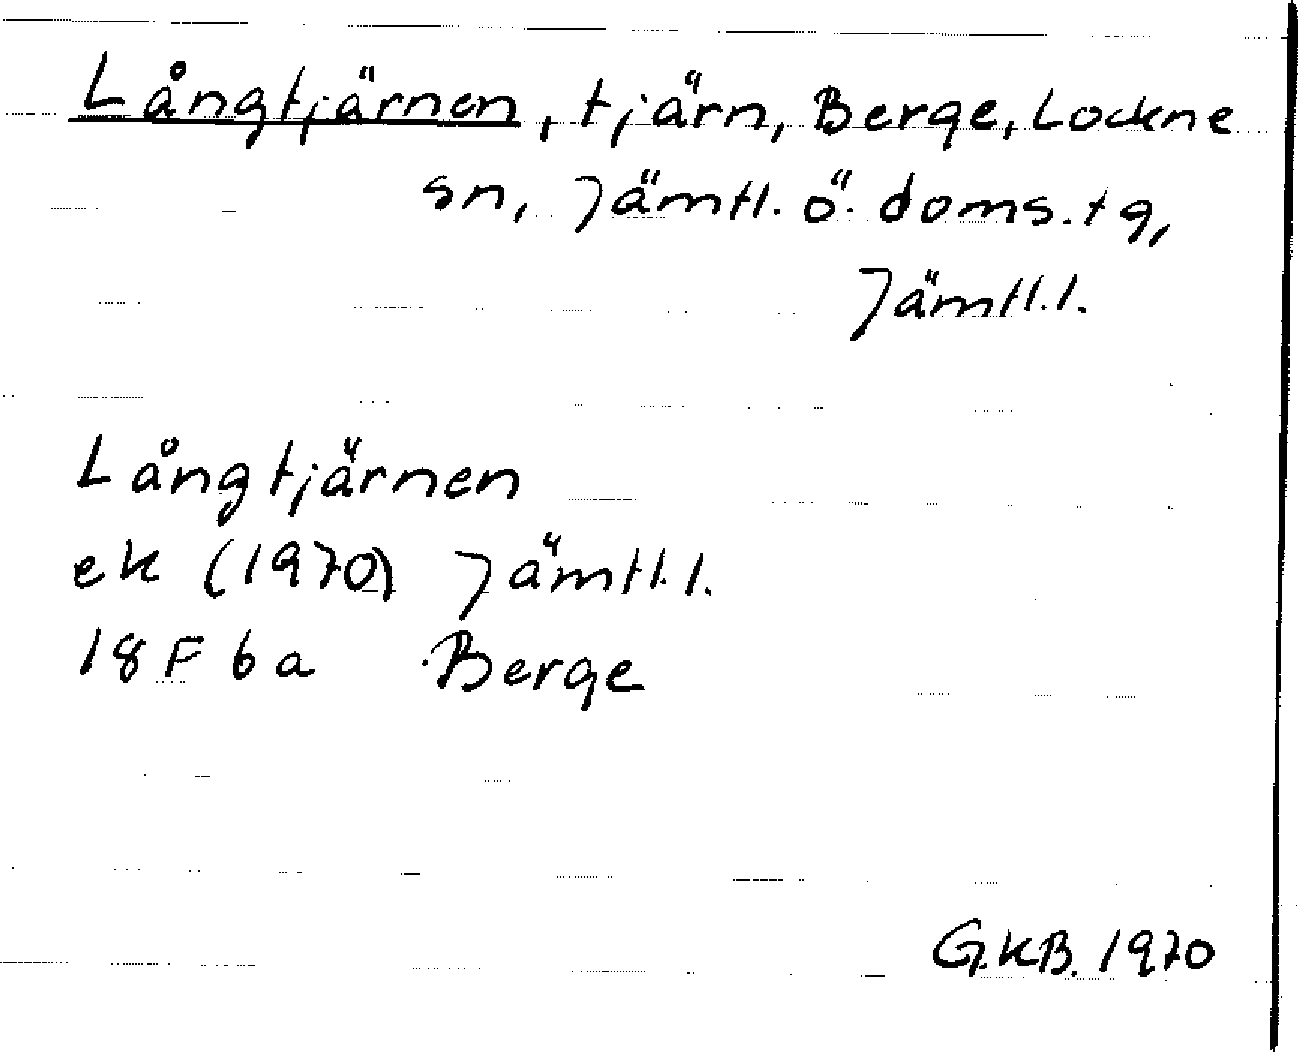 Långtjärnen, tjärn, Berge, Lockne
sn, Jämtl. ö. doms. tg,
Jämtl.l.
Långtjärnen
ek (1970) Jämtl.l.
18 F 6 a Berge
G.K.B. 1970